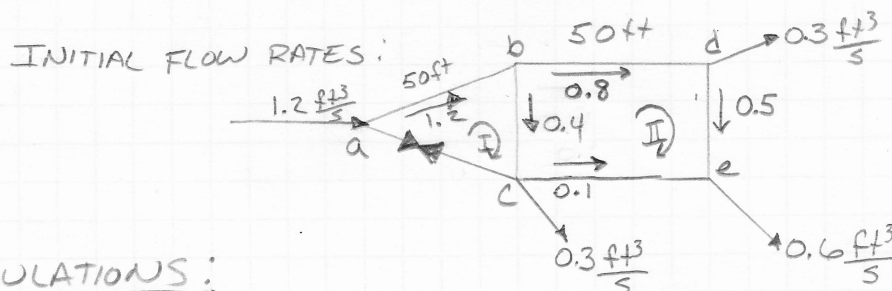 INITIAL FLOW RATES:
1.2 ft³/s
a
50ft
1.2
b
50ft
0.8
d
0.3 ft³/s
0.4
I
II
0.5
c
0.1
e
0.3 ft³/s
0.6 ft³/s
ULATIONS: